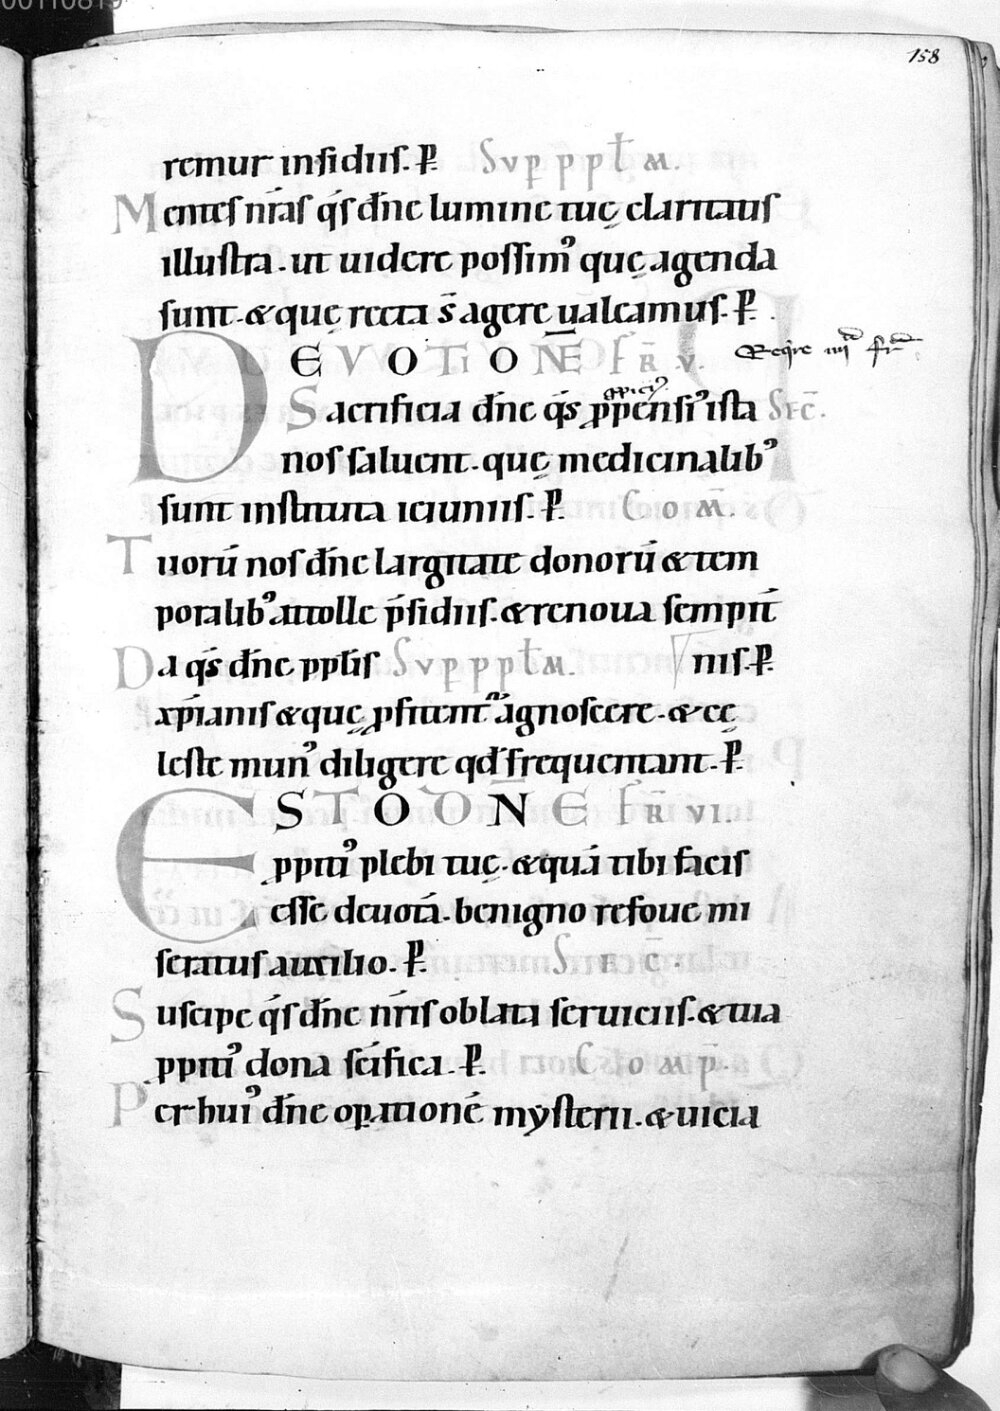 00110819
158
remur insidiis. P. Svp ppłm.
Mentes nr̄as q̄s dn̄e lumine tuę claritatis
illustra. ut uidere possimꝰ quę agenda
sunt. & quę recta s̄ agere ualeamus. P.
DEVOTIONĒ FR̄ V. Reqire iiii fr̄
Sacrificia dn̄e q̄s ꝓpensiꝰ ista SEC̄.
nos saluent. quę medicinalibꝰ
sunt instituta ieiuniis. P. COM̄.
Tuorū nos dn̄e largitate donorū & tem
poralibꝰ attolle p̄sidiis. & renoua sempit̄
Da q̄s dn̄e pplīs Svp ppłm. nis. P.
xp̄ianis & quę ꝓfitent̄ agnoscere. & cę
leste munꝰ diligere qd̄ frequentant. P.
ESTO DN̄E FR̄ VI.
ꝓpitiꝰ plebi tuę. & quā tibi facis
esse deuotā. benigno refoue mi
seratus auxilio. P. SEC̄.
Suscipe q̄s dn̄e nr̄is oblata seruiciis. & tua
ꝓpitiꝰ dona sc̄ifica. P. COMP̄.
Per huiꝰ dn̄e oꝑationē mysterii. & uicia